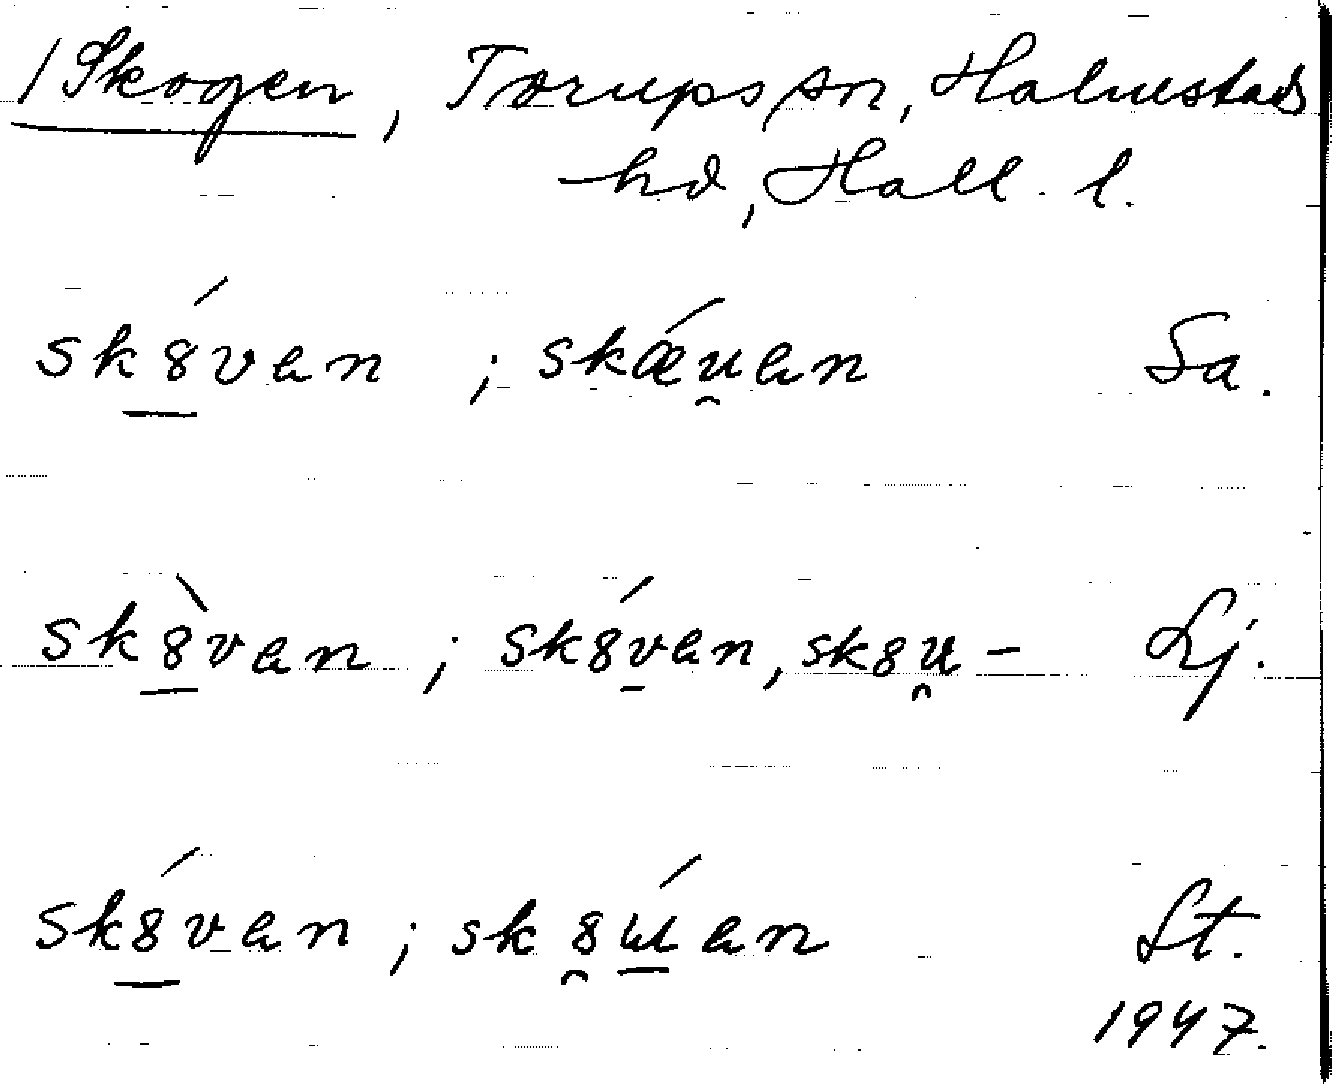 /Skogen, Torups sn, Halmstads
hd, Hall. l.
sk8́van ; skǽu̯an Sa.
sk8̀van ; sk8́van, sk8u̯- Lj.
sk8́van ; sk8̯úan St.
1947.